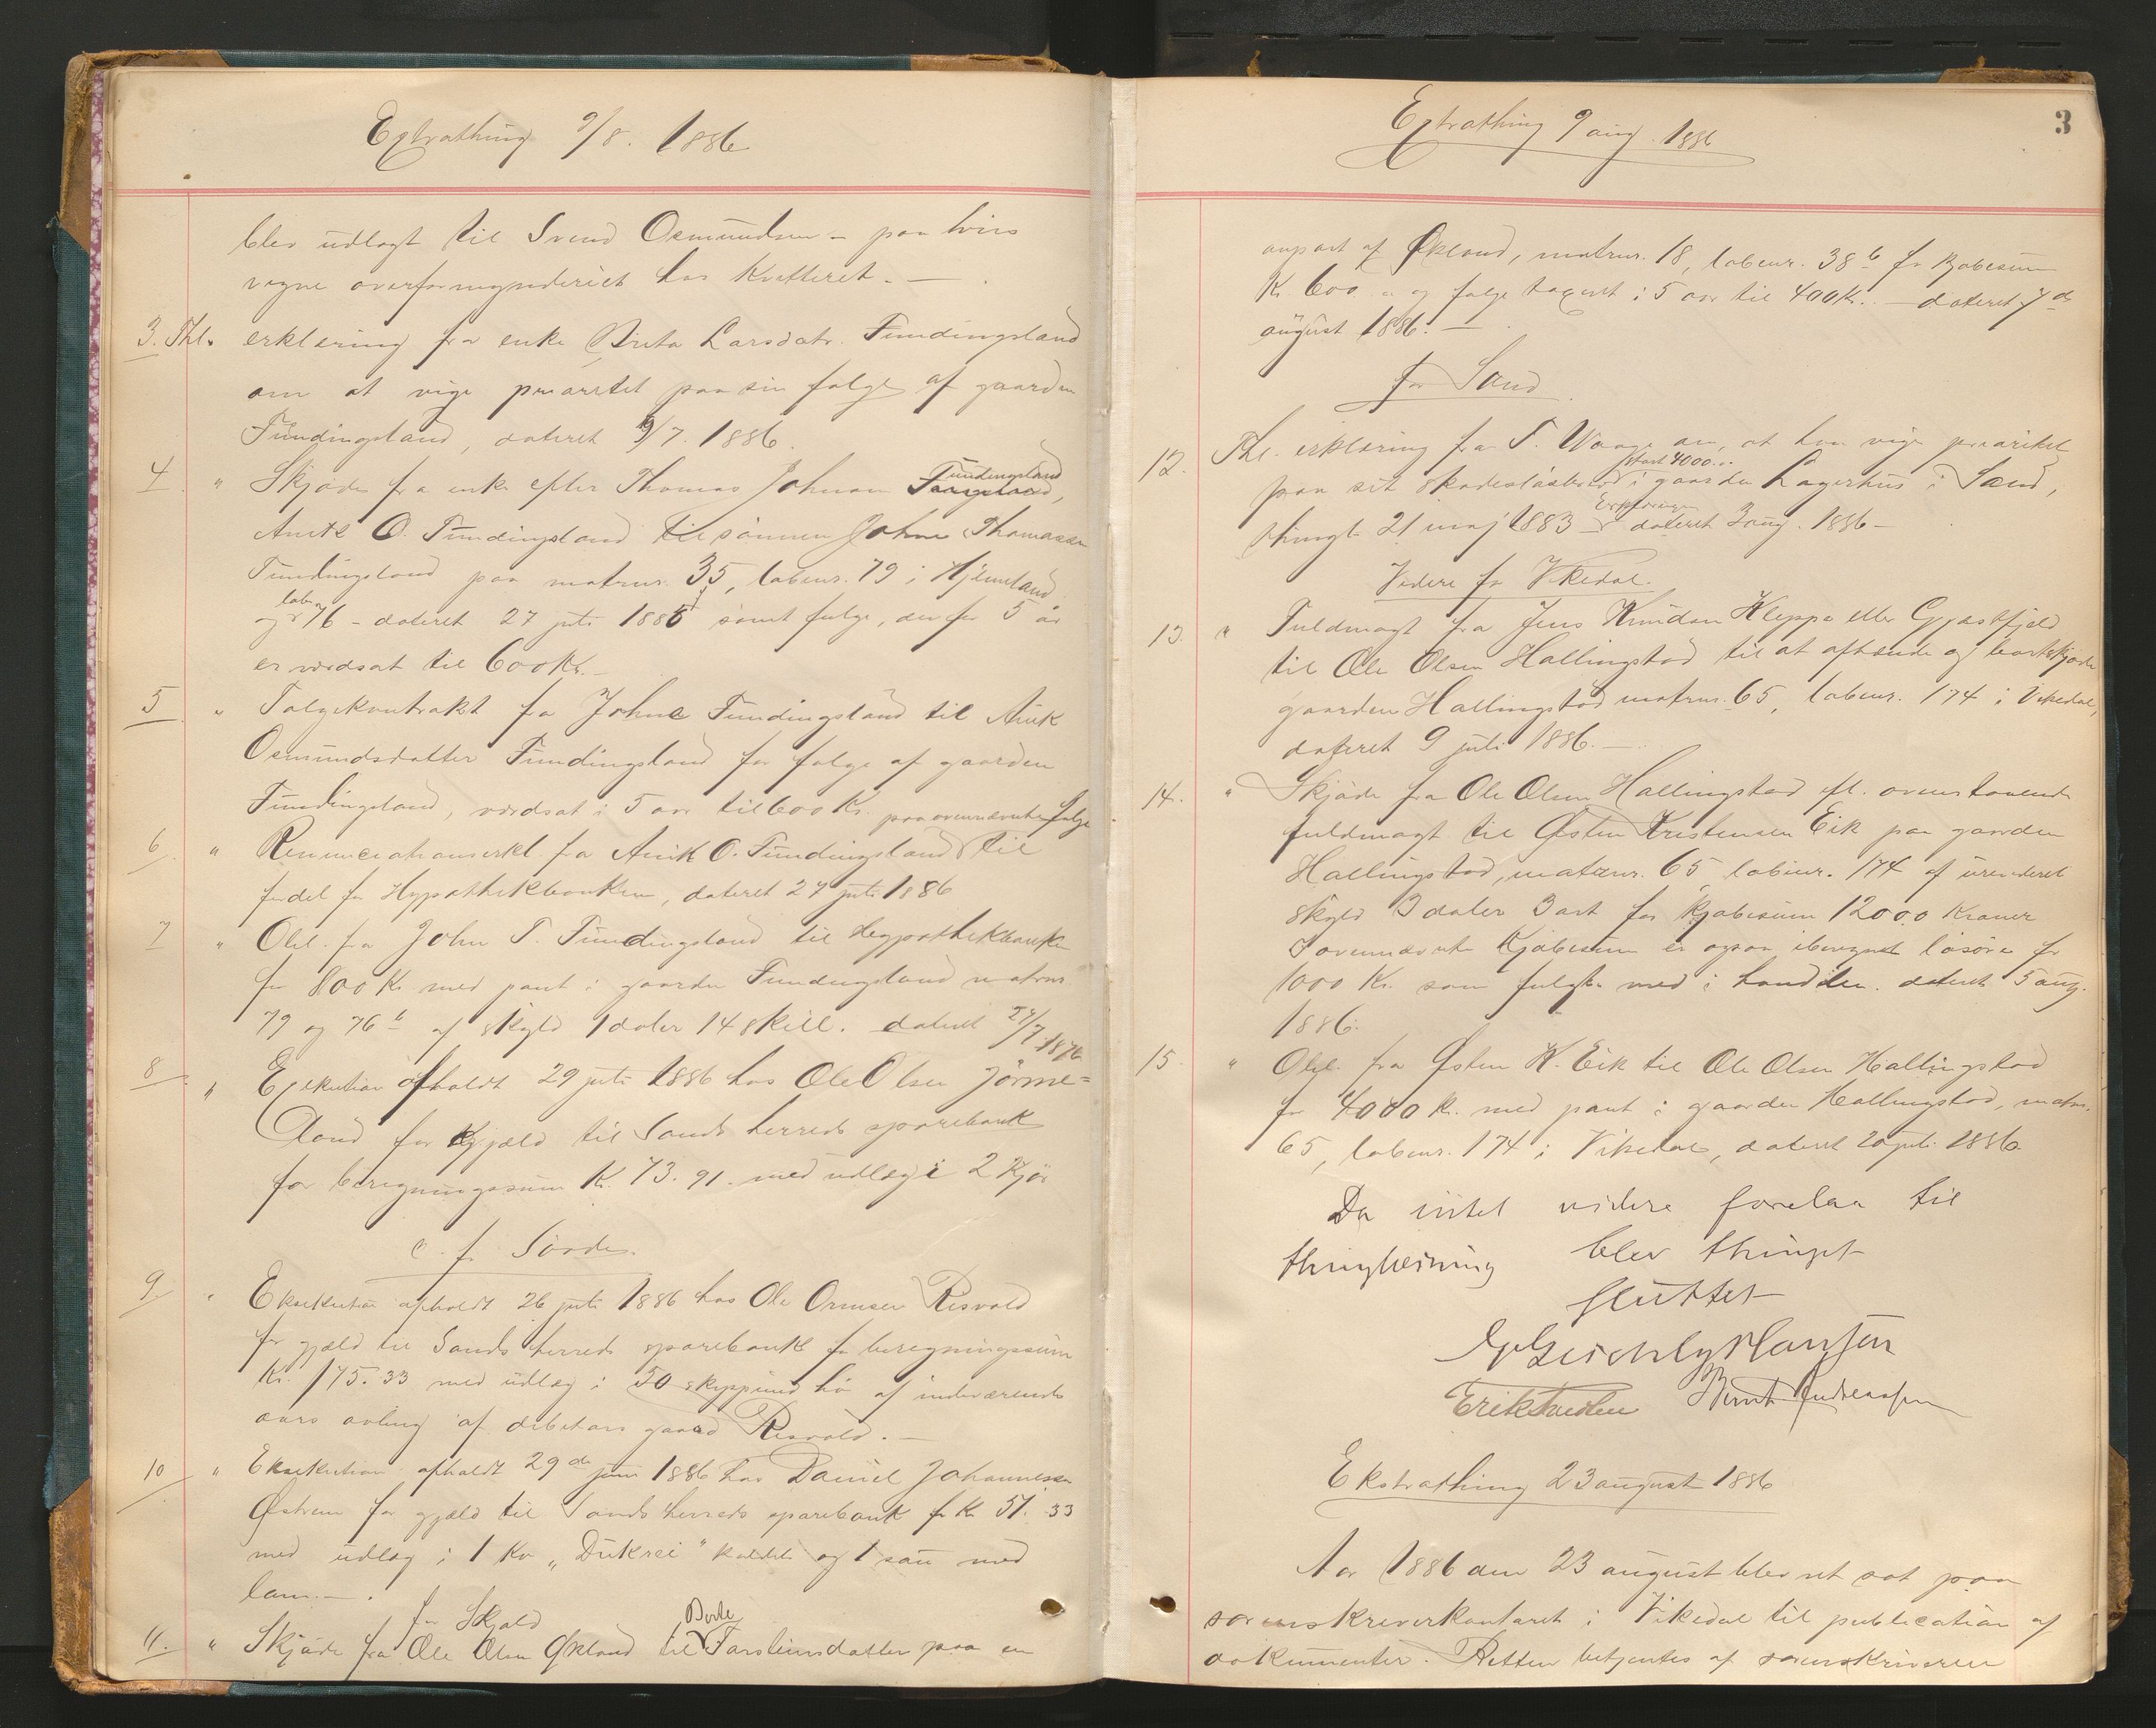 Extrathing 9/8. 1886
blev udlagt til Svend Osmundsen – paa hvis
vegne overformynderiet har kvitteret. –
3. Thl. erklæring fra enke Brita Larsdatr. Fundingsland
om at vige prioritet paa sin folge af gaarden
Fundingsland, dateret 9/7. 1886.
4 " Skjøde fra enke efter Thomas Johnsen Fundingsland,
O. Fundingsland til sønnen Johne Thomassen
Fundingsland paa matrnr. 35, løbenr. 79 i Hjelmeland
og løbnr 76 – dateret 27 juli 1886 samt folge, der for 5 år
er værdsat til 600 Kr. –
5 " Folgekontrakt fra Johne Fundingsland til
Osmundsdatter Fundingsland for folge af gaarden
Fundingsland, værdsat i 5 aar til 600 Kr.
6 " Renunciationserkl. fra O. Fundingsland paa ovennævnte folge til
fordel for Hypothekbanken, dateret 27 juli 1886
7 " Obl. fra John T. Fundingsland til Hypothekbanken
for 800 Kr. med pant i gaarden Fundingsland matrnr
79 og 76 b af skyld 1 daler 14 skill. dateret 27/7 1886
8 " Exekution afholdt 29 juli 1886 hos Ole Olsen Jørme=
land for gjæld til Sands herreds sparebank
for beregningssum Kr. 73. 91. med udlæg i 2 kjør
c. f. Søvde.
9 " Eksekution afholdt 26 juli 1886 hos Ole Ormsen Risvold
for gjæld til Sands herreds sparebank for beregningssum
Kr. 175. 33 med udlæg i 50 skippund hø af indeværende
aars avling af debitors gaard Risvold. –
10 " Eksekution afholdt 29de juni 1886 hos Daniel Johannessen
Østrem for gjæld til Sands herreds sparebank for Kr. 51. 33
med udlæg i 1 ko „Dukrei" kaldet og 1 sau med
lam. –
for Skjold
11. " Skjøde fra Ole Olsen Økland til Berte Torsteinsdatter paa en
3
Extrathing 9 aug. 1886
anpart af Økland, matrnr. 18, løbenr. 38 b for kjøbesum
Kr. 600 og folge taxeret i 5 aar til 400 Kr. – dateret 7de
august 1886. –
for Sand
12. Thl. erklæring fra T. Waage om, at han viger prioritet
paa sit skadesløsbrev stort 4000. i gaarden Lagerhus i Sand,
thinglt 21 maj 1883 – Erklæringen dateret 3 aug. 1886 –
Videre for Vikedal.
13. " Fuldmagt fra Jens Knudsen Kleppe eller Gjæstfjeld
til Ole Olsen Hallingstad til at afhænde og bortskjøde
gaarden Hallingstad matrnr. 65, løbenr. 174 i Vikedal,
dateret 9 juli 1886. –
14. " Skjøde fra Ole Olsen Hallingstad ifl. ovenstaaende
fuldmagt til Østen Kristensen Eik paa gaarden
Hallingstad, matrnr. 65 løbenr. 174 af urevideret
skyld 3 daler 3 ort for kjøbesum 12000 Kroner
I ovennævnte kjøbesum er ogsaa iberegnet løsøre for
1000 Kr. som fulgte med i handelen. dateret 5 aug.
1886.
15. " Obl. fra Østen K. Eik til Ole Olsen Hallingstad
for 4000 Kr. med pant i gaarden Hallingstad, matrn.
65, løbenr. 174 i Vikedal, dateret 20 juli 1886.
Da intet videre forelaa til
thinglæsning blev thinget
sluttet
Hansen
Erik Berent Andreassen
Ekstrathing 23 august 1886
Aar 1886 den 23 august blev ret sat paa
sorenskriverkontoret i Vikedal til publication af
dokumenter. Retten betjentes af sorenskriveren